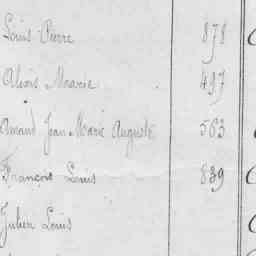 Louis Pierre 878
Alexis Marie 497
Amand Jean Marie Auguste 563
François Louis 839
Julien Louis